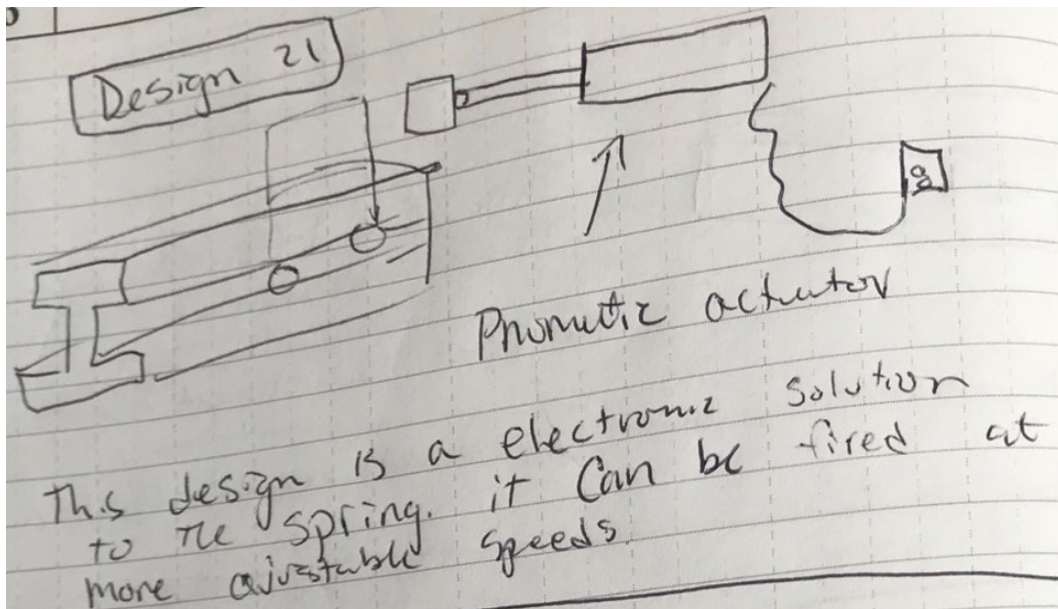 Design 21
Phumutiz actuator
This design is a electronic solution
to the spring. it Can be fired at
more ajustable speeds.